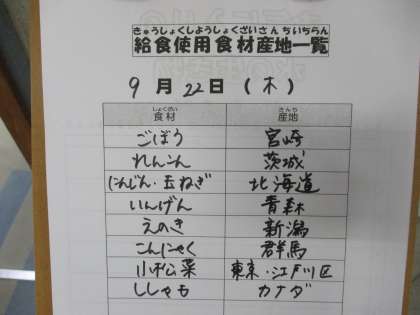 きゅうしょくしようしょくざいさんちいちらん
給食使用食材産地一覧
9月22日(木)
しょくざい さんち
食材 産地
ごぼう 宮崎
れんこん 茨城
にんじん・玉ねぎ 北海道
いんげん 青森
えのき 新潟
こんにゃく 群馬
小松菜 東京・江戸川区
ししゃも カナダ